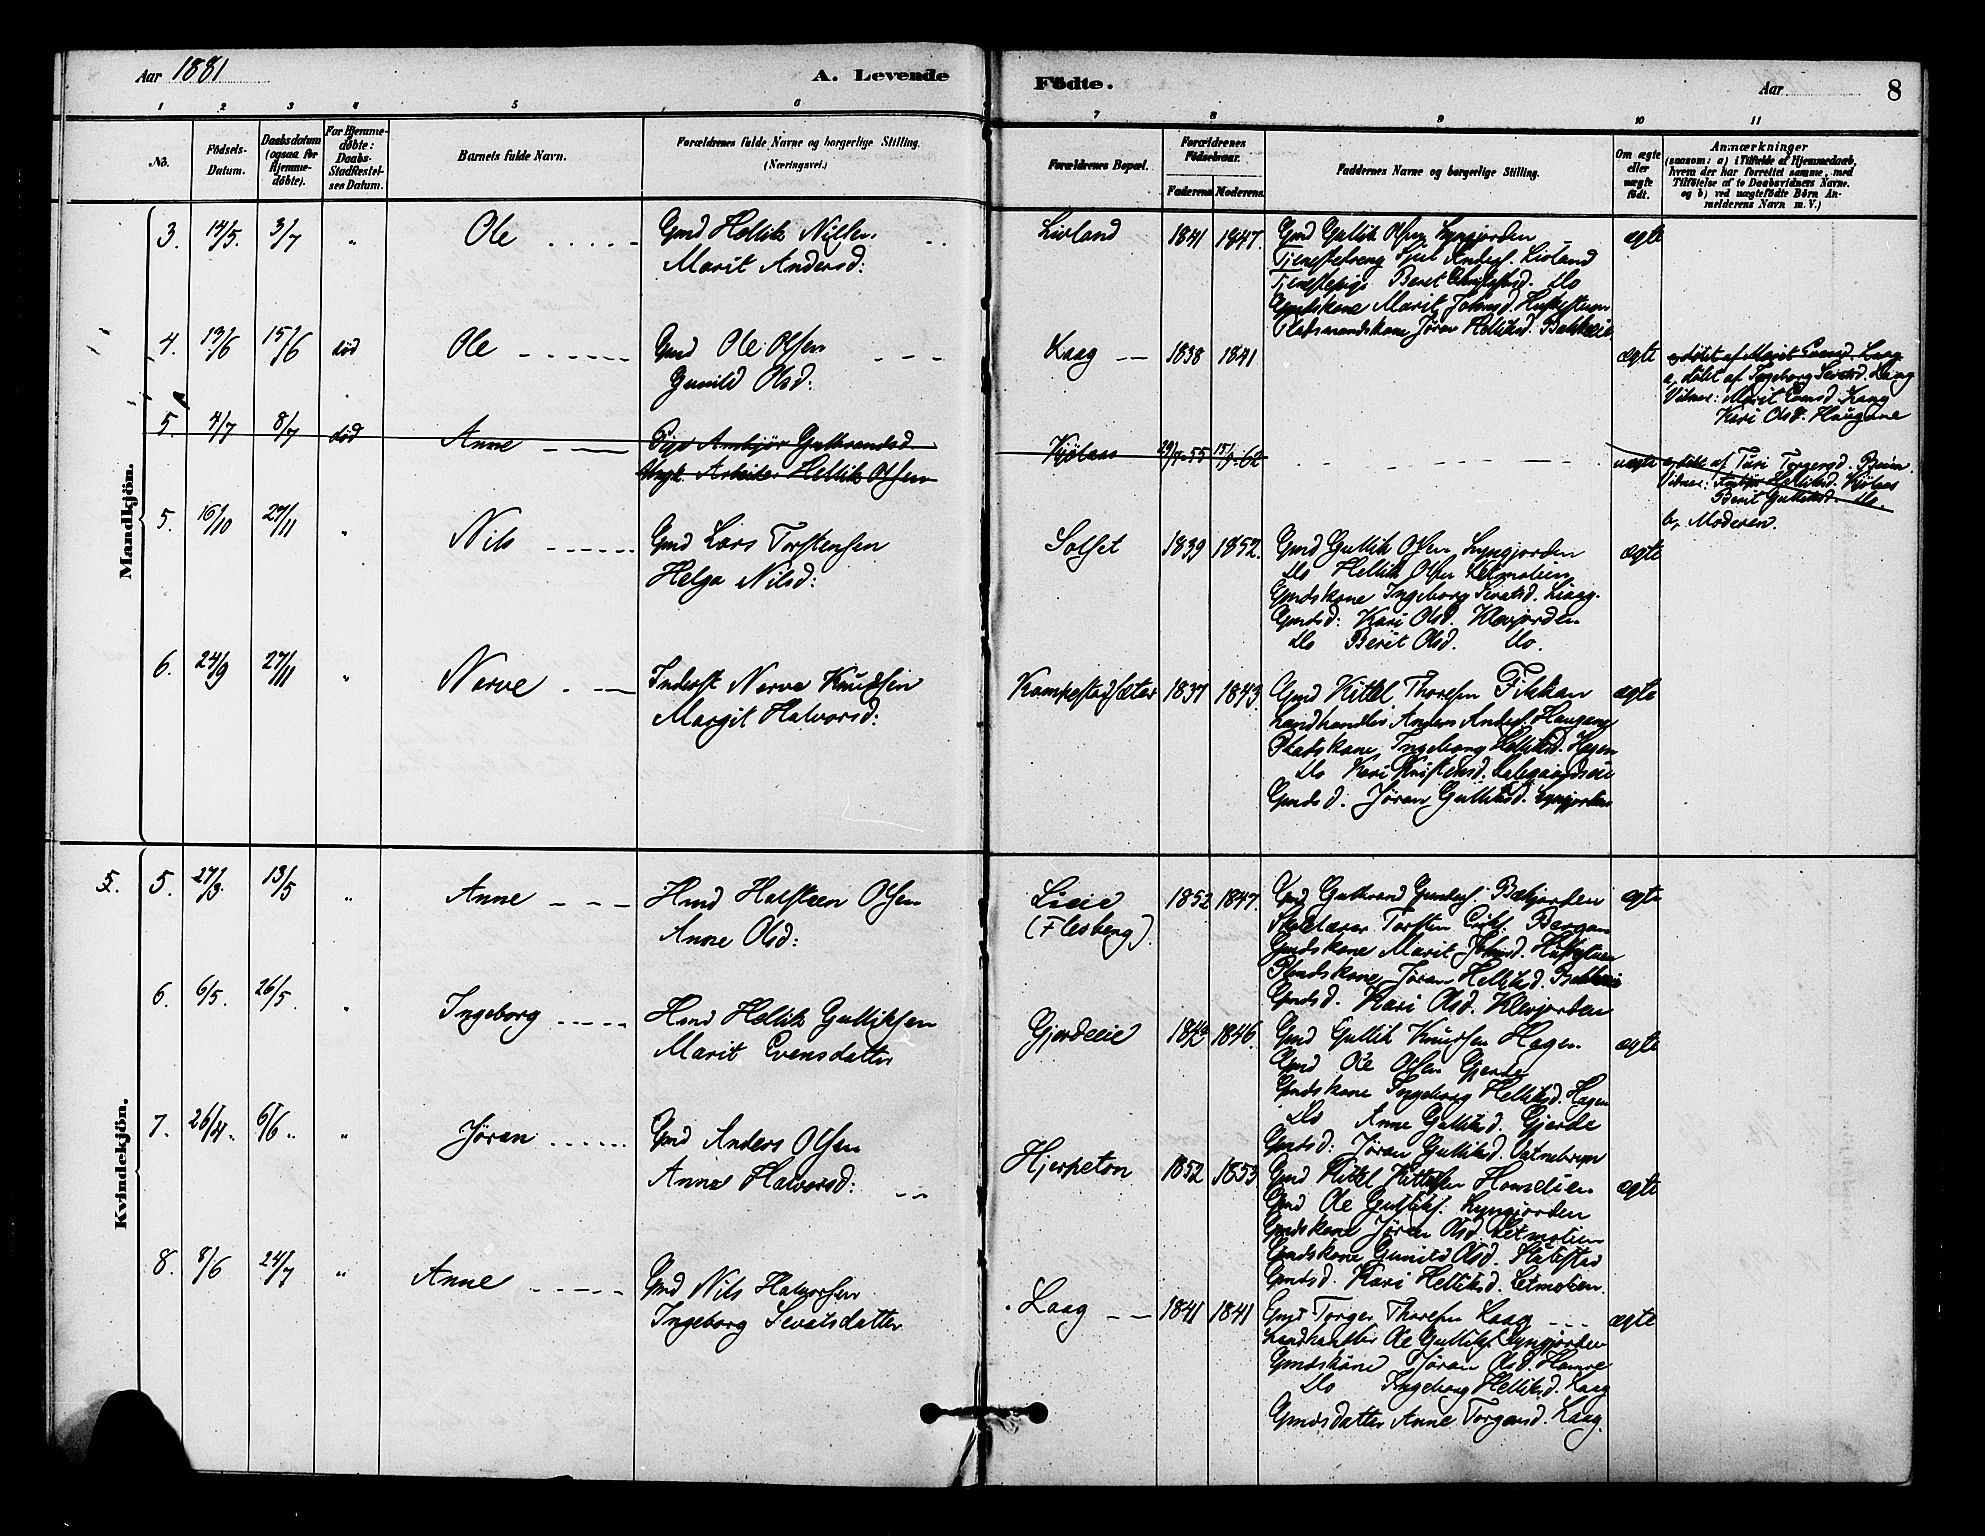 Aar 1881 A. Levende Fødte. Aar 8
1 2 3 4 5 6 7 8 9 10 11
No.
Fødsels-Datum.
Daabsdatum (ogsaa for Hjemmedøbte).
For Hjemmedøbte: Daabs-Stadfæstelses Datum.
Barnets fulde Navn.
Forældrenes fulde Navne og borgerlige Stilling. (Næringsvei.)
Forældrenes Bopæl.
Forældrenes Fødselsaar. Faderens Moderens.
Faddernes Navne og borgerlige Stilling.
Om ægte eller uægte født.
Anmærkninger (saasom: a) i Tilfælde af Hjemmedaab, hvem der har forrettet samme, med Tilføielse af to Daabsvidners Navne. og b) ved uægtefødte Børn Anmelderens Navn m. V.)
Mandkjön.
3. 14/5. 3/7 " Ole Gmd Hellik Nilsen Livland 1841 1847. Gmd Gullik Olsen Lyngjorden ægte
Marit Andersd: Tjenestedreng Andersf. Livland
Tjenestepige Beret Do
Gmdskone Marit Johnsd. Hustestuen
Pladsmandskone Jøran Helliksd. Bakkeeie
4. 13/6 15/6 død Ole Gmd Ole Olsen Laag 1838 1841 ægte
Gunild Olsd: a, døbt af Ingeborg Sevatsd. Laag
Vidner: Marit Evensd. Laag
Kari Olsd. Haugane
5. 4/7 8/7 død Anne Pige Ambjør Gulbrandsd Kjølaas 29/7-55 uægte a, døbt af Turi Torgersd.
Ungk. Arbeider Hellik Olsen Vidner: Ambjør Helliksd. Kjølaas
Berit Gulliksd. Do.
b, Moderen.
5. 16/10 27/11 " Nils Gmd Lars Torstensen Solset 1839 1852. Gmd Gullik Olsen Lyngjorden ægte
Helga Nilsd: Do Hellik Olsen Letmolien
Gmdskone Ingeborg Sevatsd. Laag.
Gmdsd: Kari Olsd. Klevjorden
Do Berit Olsd. Do.
6. 24/9 27/11 " Nerve Inderst Nerve Knudsen Kompestadsæter 1837 1843. Gmd Kittel Thoresen Fikkan ægte
Margit Halvorsd: Landhandler Anders Andersf. Haugane
Pladskone Ingeborg Helliksd. Hagen
Do Kari Kristensd.
Gmdsd. Jøran Gulliksd. Lyngjorden
Kvindekjön.
5. 5. 27/3. 13/5 " Anne Hmd Halsteen Olsen Lieie 1852 1847. Gmd Gulbrand Bækjorden ægte
Anne Olsd: (Flesberg). Skolelærer Torsten Bergan
Gmdskone Marit Johnsd. Hustestuen
Plmdskone Jøran Helliksd. Bakkeeie
Gmdsd. Kari Olsd. Klevjorden
6. 6/5. 26/5 " Ingeborg Hmd Hellik Gulliksen Gjerdeeie 1842 1846. Gmd Gullik Knudsen Hagen ægte
Marit Evensdatter Gmd Ole Olsen Gjerde
Gmdskone Ingeborg Helliksd. Hagen
Do Anne Gulliksd. Gjerde
Gmdsd: Jøran Gulliksd. Vatnebryn
7. 26/4. 6/6. " Jøran Gmd Anders Olsen Hjerpeton 1852 1853 Gmd Kittel Kittelsen Homelien ægte
Anne Halvorsd: Gmd Ole Gulliksf. Lyngjorden
Gmdskone Jøran Olsd. Letmolien
Gmdskone Gunild Olsd.
Gmdsd. Kari Helliksd. Letmolien.
8. 8/6 24/7 " Anne Gmd Nils Halvorsen Laag 1841 1841 Gmd Torger Thoresen Laag ægte
Ingeborg Sevatsdatter Landhandler Ole Gulliksf. Lyngjorden
Gmdskone Jøran Olsd. Hamre
Do Ingeborg Helliksd. Laag
Gmdsdatter Anne Torgersd. Laag.